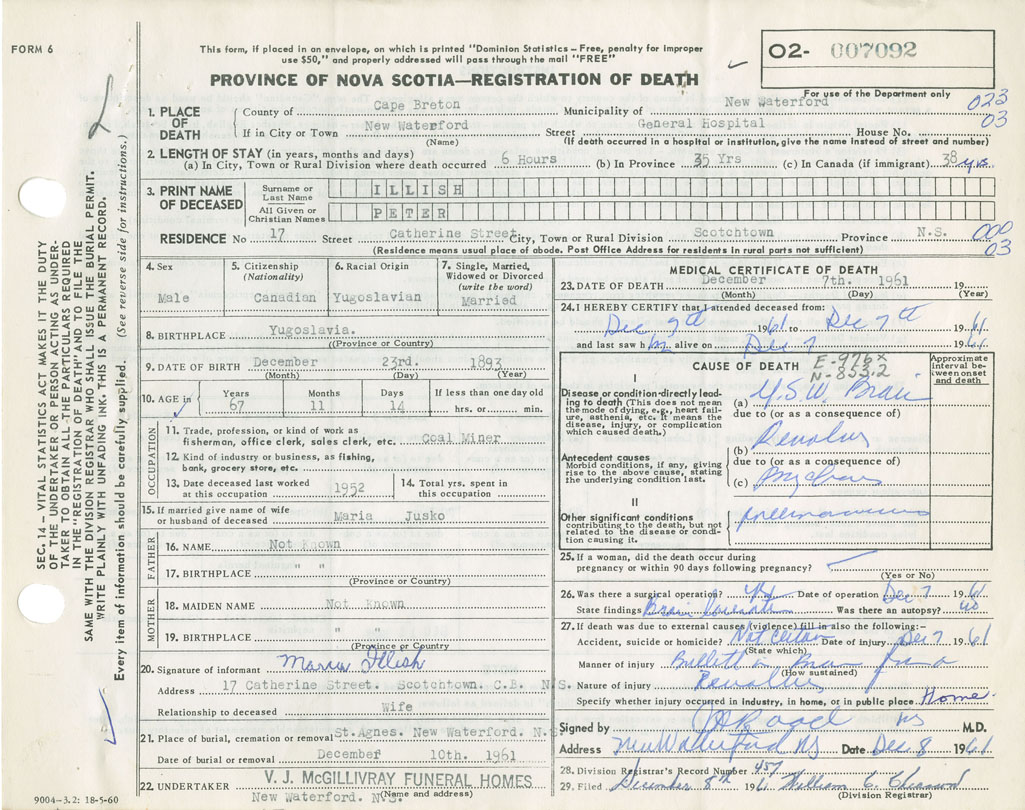 FORM 6
This form, if placed in an envelope, on which is printed "Dominion Statistics – Free, penalty for improper
use $50," and properly addressed will pass through the mail "FREE"
O2- 007092
PROVINCE OF NOVA SCOTIA—REGISTRATION OF DEATH
For use of the Department only
023
03
1. PLACE OF DEATH
County of Cape Breton Municipality of New Waterford
If in City or Town New Waterford Street General Hospital House No.
(Name) (If death occurred in a hospital or institution, give the name instead of street and number)
2. LENGTH OF STAY (in years, months and days)
(a) In City, Town or Rural Division where death occurred 6 Hours (b) In Province 35 Yrs (c) In Canada (if immigrant) 38 yrs
3. PRINT NAME OF DECEASED
Surname or Last Name ILLISH
All Given or Christian Names PETER
RESIDENCE No 17 Street Catherine Street City, Town or Rural Division Scotchtown Province N.S.
000
03
(Residence means usual place of abode. Post Office Address for residents in rural parts not sufficient)
4. Sex Male
5. Citizenship (Nationality) Canadian
6. Racial Origin Yugoslavian
7. Single, Married, Widowed or Divorced (write the word) Married
8. BIRTHPLACE Yugoslavia.
((Province or Country)
9. DATE OF BIRTH December 23rd. 1893
(Month) (Day) (Year)
10. AGE in Years 67 Months 11 Days 14 If less than one day old hrs. or min.
OCCUPATION
11. Trade, profession, or kind of work as
fisherman, office clerk, sales clerk, etc. Coal Miner
12. Kind of industry or business, as fishing,
bank, grocery store, etc.
13. Date deceased last worked at this occupation 1952
14. Total yrs. spent in this occupation
15. If married give name of wife
or husband of deceased Maria Jusko
FATHER
16. NAME Not Known
17. BIRTHPLACE " "
(Province or Country)
MOTHER
18. MAIDEN NAME Not Known
19. BIRTHPLACE " "
(Province or Country)
20. Signature of informant Maria Illish
Address 17 Catherine Street. Scotchtown. C.B. N.S.
Relationship to deceased Wife
21. Place of burial, cremation or removal St. Agnes. New Waterford. N.S
Date of burial or removal December 10th. 1961
22. UNDERTAKER V. J. McGILLIVRAY FUNERAL HOMES
New Waterford. N.S. (Name and address)
MEDICAL CERTIFICATE OF DEATH
23. DATE OF DEATH December 7th. 1961 19
(Month) (Day) (Year)
24. I HEREBY CERTIFY that I attended deceased from:
Dec 7th 1961 to Dec 7th 1961
and last saw him alive on Dec 7 1961
CAUSE OF DEATH E-976x
N-853.2
Approximate interval between onset and death
I
Disease or condition directly leading to death (This does not mean the mode of dying, e.g., heart failure, asthenia, etc. It means the disease, injury, or complication which caused death.)
(a) G.S.W. Brain
due to (or as a consequence of)
(b) Revolver
Antecedent causes
Morbid conditions, if any, giving rise to the above cause, stating the underlying condition last.
due to (or as a consequence of)
(c)
II
Other significant conditions
contributing to the death, but not related to the disease or condition causing it.
25. If a woman, did the death occur during
pregnancy or within 90 days following pregnancy?
(Yes or No)
26. Was there a surgical operation? Yes Date of operation Dec 7 1961
State findings Brain laceration Was there an autopsy? no
27. If death was due to external causes (violence) fill in also the following:-
Accident, suicide or homicide? Not Certain Date of injury Dec 7 1961
(State which)
Manner of injury Bullett in Brain from a
(How sustained)
Nature of injury Revolver
Specify whether injury occurred in industry, in home, or in public place. Home
Signed by M.D.
Address New Waterford NS Date Dec. 8 1961
28. Division Registrar's Record Number 457
29. Filed December 8th 1961 William C.
(Division Registrar)
SEC. 14 – VITAL STATISTICS ACT MAKES IT THE DUTY
OF THE UNDERTAKER OR PERSON ACTING AS UNDER-
TAKER TO OBTAIN ALL THE PARTICULARS REQUIRED
IN THE "REGISTRATION OF DEATH" AND TO FILE THE
SAME WITH THE DIVISION REGISTRAR WHO SHALL ISSUE THE BURIAL PERMIT.
WRITE PLAINLY WITH UNFADING INK. THIS IS A PERMANENT RECORD.
Every item of information should be carefully supplied. (See reverse side for instructions.)
9004-3.2: 18-5-60